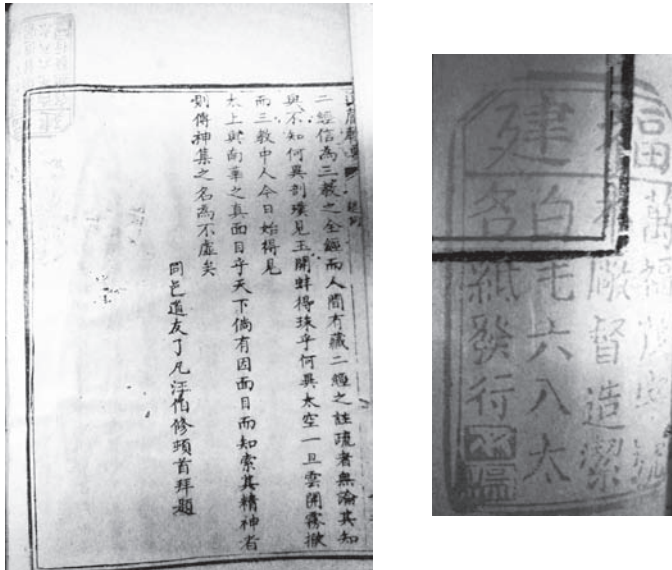 二經信為三教之全經而人間有藏二經之註疏者無論其知
與不知何異剖璞見玉開蚌得珠乎何異太空一旦雲開霧撤
而三教中人今日始得見
太上與南華之真面目乎天下倘有因面目而知索其精神者
則傳神集之名為不虛矣
同邑道友了凡汪修頓首拜題
福建
廠督造潔
白毛六八太
名紙發行